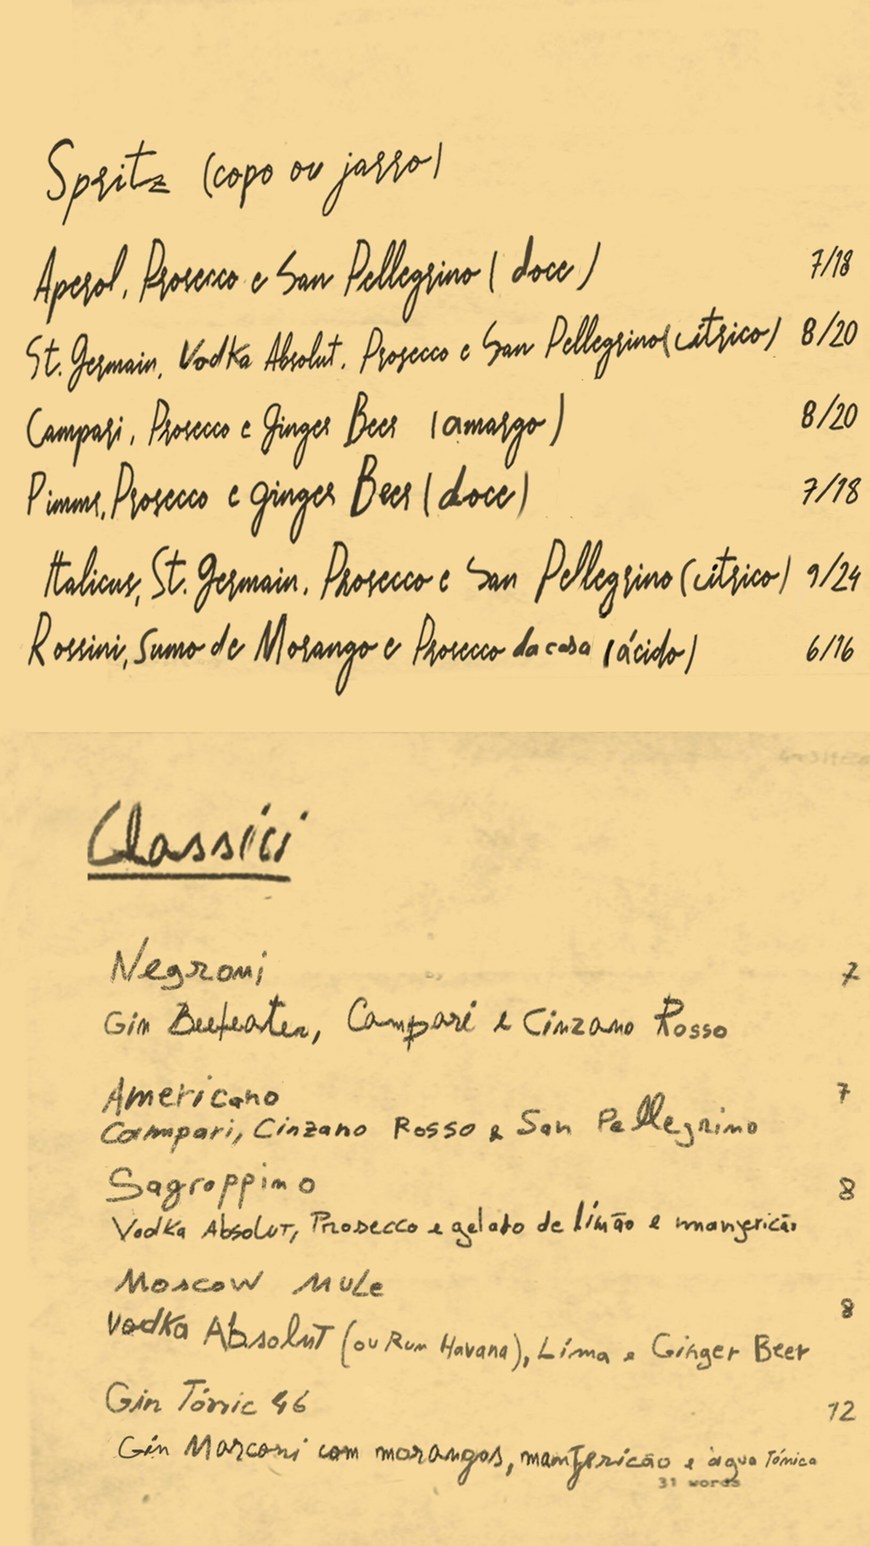 Spritz (copo ou jarro)
Aperol, Prosecco e San Pellegrino (doce) 7/18
St. Germain, Vodka Absolut, Prosecco e San Pellegrino (cítrico) 8/20
Campari, Prosecco e Ginger Beer (amargo) 8/20
Pimms, Prosecco e ginger Beer (doce) 7/18
Italicus, St. Germain, Prosecco e San Pellegrino (cítrico) 9/24
Rossini, Sumo de Morango e Prosecco da casa (ácido) 6/16
Classici
Negroni 7
Gin Beefeater, Campari e Cinzano Rosso
Americano 7
Campari, Cinzano Rosso e San Pellegrino
Sagroppino 8
Vodka Absolut, Prosecco e gelato de limão e manjericão
Moscow Mule 8
Vodka Absolut (ou Rum Havana), Lima e Ginger Beer
Gin Tónic 46 12
Gin Marconi com morangos, manjericão e àgua Tónica
31 words